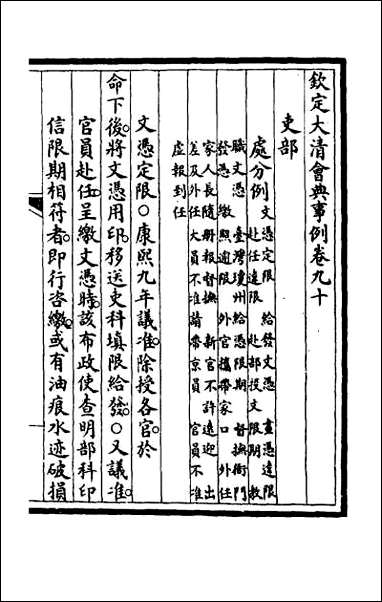 欽定大清會典事例卷九十
吏部
處分例
文憑定限　給發文憑　齎憑違限
赴任違限　赴部投文限期　教
職文憑　臺灣瓊州給憑限期　督撫衙門
發憑繳照逾限　外官攜帶家口　外任
家人長隨册報督撫　新官不許遠迎　出
差及外任大員不准請帶京員　官員不准
虛報到任
文憑定限○康熙九年議准除授各官於
命下後將文憑用印移送吏科填限給發○又議准
官員赴任呈繳文憑時該布政使查明部科印
信限期相符者即行咨繳或有油痕水迹破損